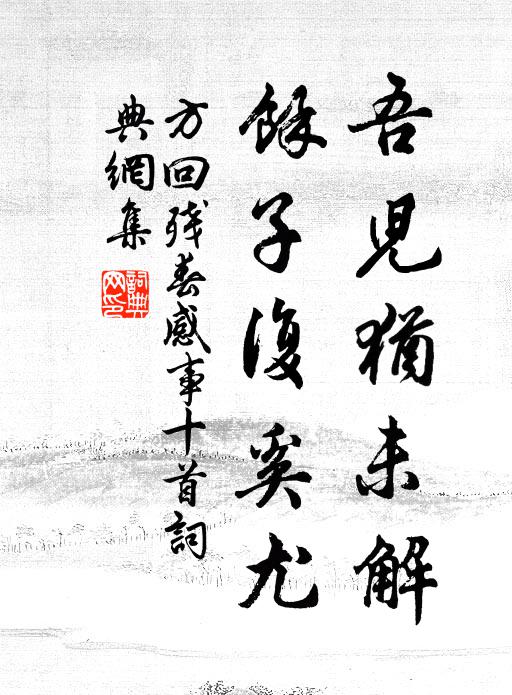 吾児猶未解
餘子復奚尤
方回残春感事十首詞
典網集
詞典網印